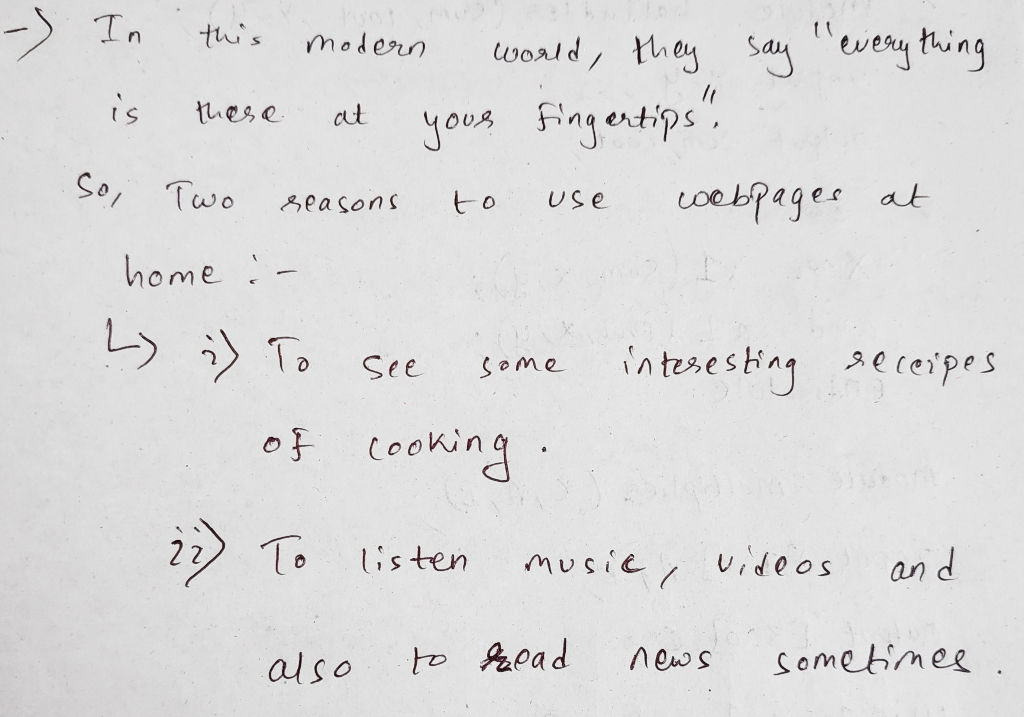 -> In this modern world, they say "everything
is there at your fingertips".
So, Two reasons to use webpages at
home :-
↳ i) To see some interesting receipes
of cooking.
ii) To listen music, videos and
also to read news sometimes.